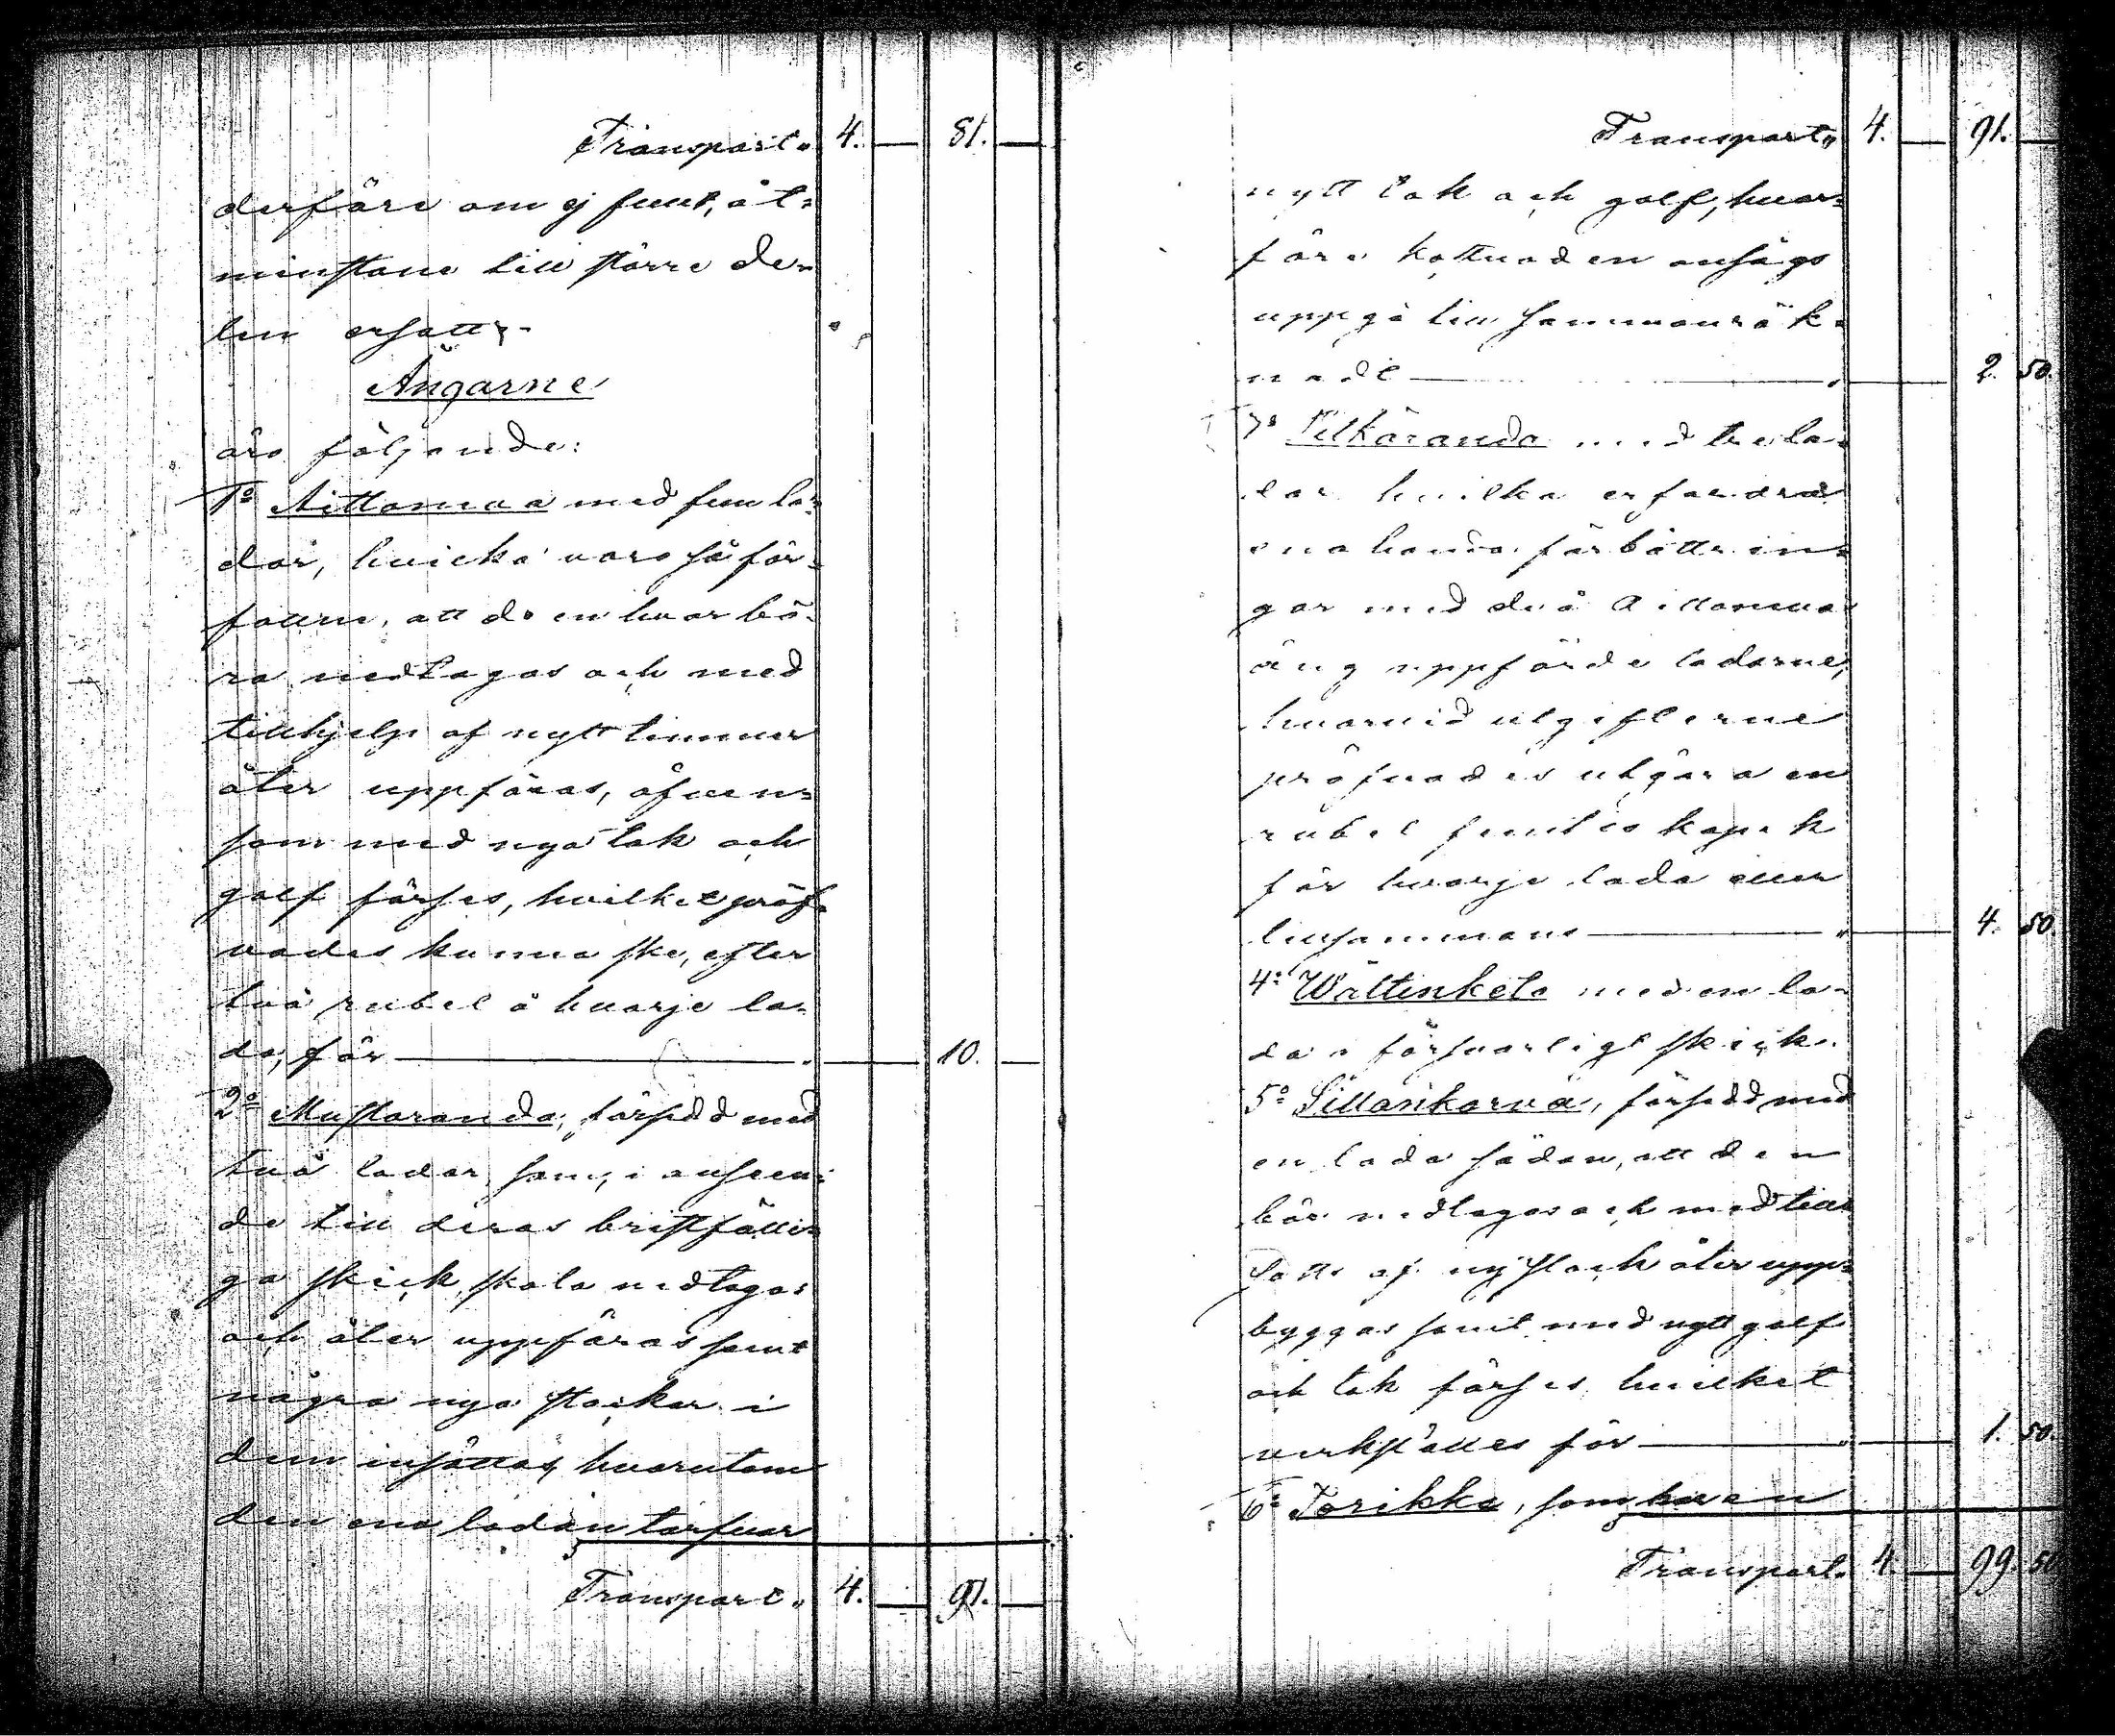 Transport„ 4. — 81. —
derföre om ej fullt, åt-
minstone till större de-
len ersatt.
Ängarne
äro följande:
1º Aittomaa med fem la-
dor, hvilka voro så för-
fallne, att de en hvar bö-
ra nedtagas och med
tillhjelp af nytt timmer
åter uppföras, äfven-
som med nya tak och
golf förses, hvilket pröf-
vades kunna ske, efter
två rubel å hvarje la-
da, för — 10. —
2º Mustaranda, försedd med
två lador, som, i anseen-
de till deras bristfälli-
ga skick, skola nedtagas
och åter uppföras samt
några nya stockar i
dem insättas, hvarutom
den ena ladan tarfvar
Transport„ 4. — 91. —
Transport„ 4. — 91. —
nytt tak och golf, hvar-
före kostnaden ansågs
uppgå till sammanräk-
nadt — 2. 50.
3º Pitkäranda med tre la-
dor hvilka erfordra
enahanda förbättrin-
gar med de å Aittomaa
äng uppförde ladorne,
hvarvid utgifterne
pröfvades utgöra en
rubel femtio kopek
för hvarje lada eller
tillsammans — 4. 50
4º Wältinkelo med en la-
da i försvarligt skick.
5º Sillänkorva, försedd med
en lada sådan, att den
bör nedtagas och med till
sats af ny stock åter upp-
byggas samt med nytt golf
och tak förses, hvilket
verkställes för — 1. 50.
6º Torikka, som har en
Transport„ 4. — 99. 50